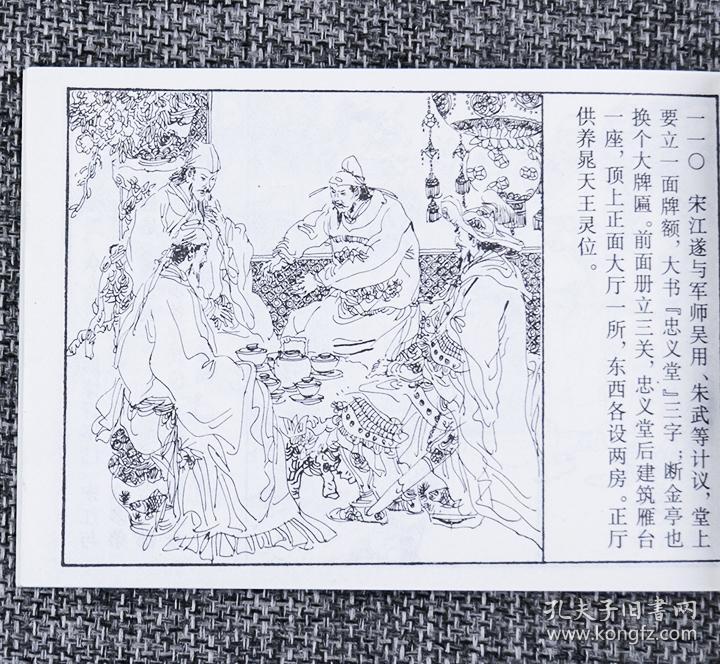 一一〇　宋江遂与军师吴用、朱武等计议，堂上
要立一面牌额，大书『忠义堂』三字；断金亭也
换个大牌匾。前面册立三关，忠义堂后建筑雁台
一座，顶上正面大厅一所，东西各设两房。正厅
供养晁天王灵位。
孔夫子旧书网
www.kongfz.com